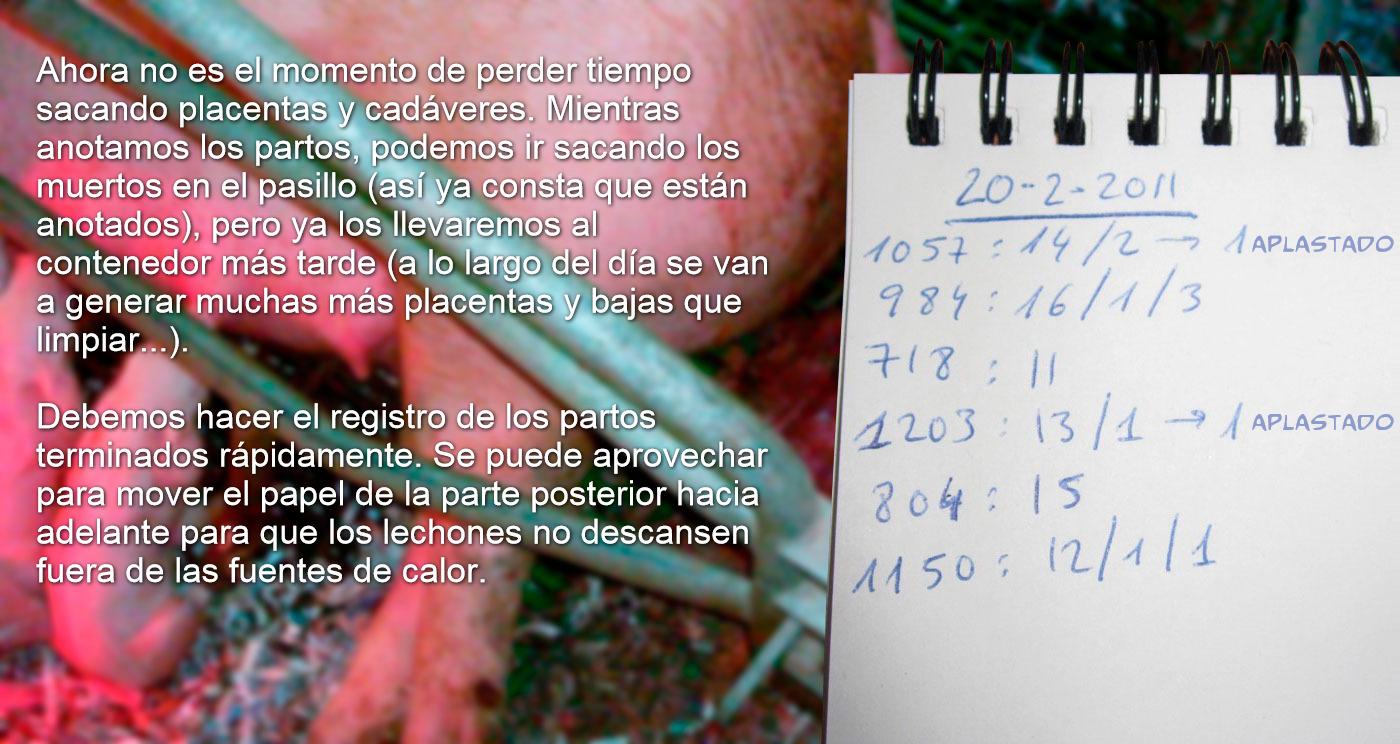 Ahora no es el momento de perder tiempo
sacando placentas y cadáveres. Mientras
anotamos los partos, podemos ir sacando los
muertos en el pasillo (así ya consta que están
anotados), pero ya los llevaremos al
contenedor más tarde (a lo largo del día se van
a generar muchas más placentas y bajas que
limpiar...).
Debemos hacer el registro de los partos
terminados rápidamente. Se puede aprovechar
para mover el papel de la parte posterior hacia
adelante para que los lechones no descansen
fuera de las fuentes de calor.
20-2-2011
1057 : 14/2 → 1 APLASTADO
984 : 16/1/3
718 : 11
1203 : 13/1 → 1 APLASTADO
804 : 15
1150 : 12/1/1